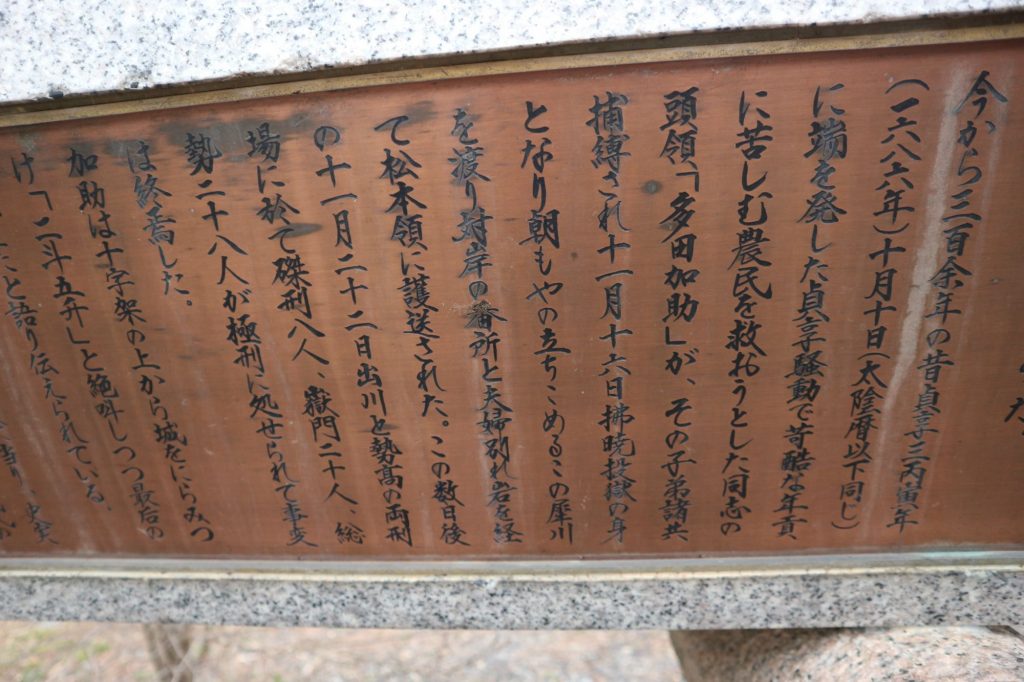 今から三百余年の昔貞享三丙寅年
(一六八六年)十月十日(太陰暦以下同じ)
に端を発した貞享騒動で苛酷な年貢
に苦しむ農民を救おうとした同志の
頭領「多田加助」が、その子弟諸共
捕縛され十一月十六日払暁投獄の身
となり朝もやの立ちこめるこの犀川
を渡り対岸の番所と夫婦別れ岩を経
て松本領に護送された。この数日後
の十一月二十二日出川と勢高の両刑
場に於て磔刑八人、獄門二十人、総
勢二十八人が極刑に処せられて事変
は終焉した。
加助は十字架の上から城をにらみつ
け「二斗五升」と絶叫しつつ最后の
と語り伝えられている。